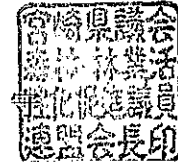 宮崎県議会
森林林業活
性化促進議員
連盟会長印